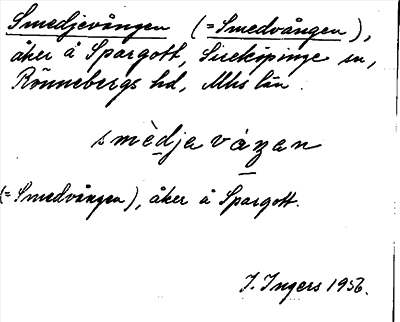 Smedjevången (= Smedvången),
åker å Spargott, Sireköpinge sn,
Rönnebergs hd, Mhs län.
smèdja váŋan
(= Smedvången), åker å Spargott.
I. Ingers 1956.